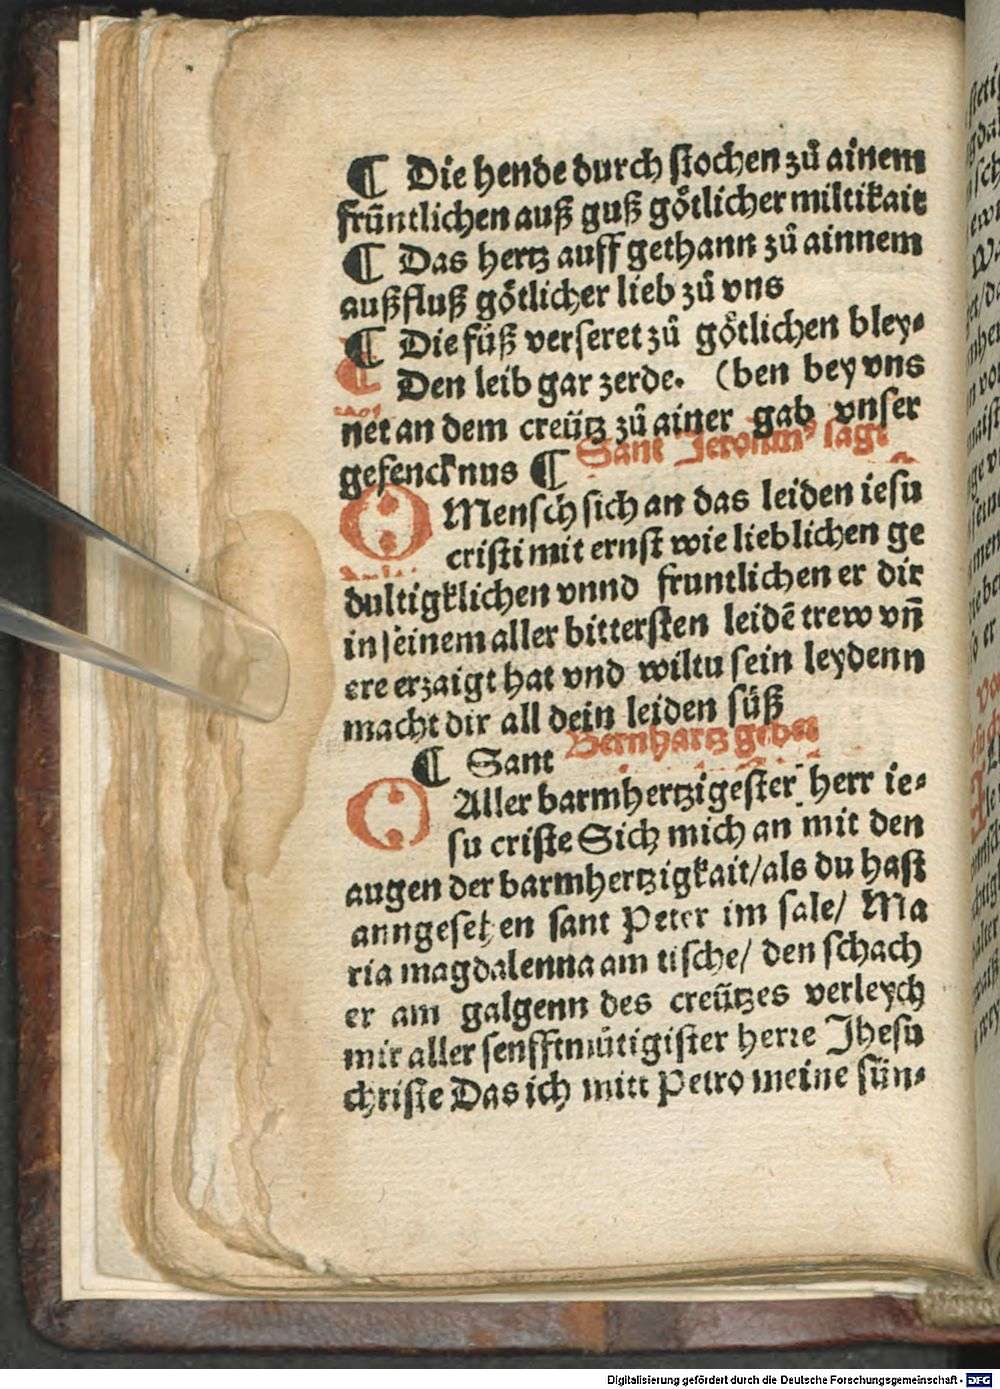 ¶ Die hende durch stochen zů ainem
früntlichen auß guß götlicher miltikait
¶ Das hertz auff gethann zů ainnem
außfluß götlicher lieb zů vns
¶ Die füß verseret zů götlichen bley⸗
¶ Den leib gar zerde. (ben bey vns
net an dem creütz zů ainer gab vnser
gefencknus ¶ Sant Jeronim⁹ sagt
O Mensch sich an das leiden iesu
cristi mit ernst wie lieblichen ge
dultigklichen vnnd fruntlichen er dir
in seinem aller bittersten leidē trew vn̄
ere erzaigt hat vnd wiltu sein leydenn
macht dir all dein leiden süß
¶ Sant Bernhartz gebet
O Aller barmhertzigester herr ie⸗
su criste Sich mich an mit den
augen der barmhertzigkait/als du hast
anngesehen sant Peter im sale/ Ma
ria magdalenna am tische/ den schach
er am galgenn des creützes verleych
mir aller senfftmütigister herre Jhesu
christe Das ich mitt Petro meine sün⸗
Digitalisierung gefördert durch die Deutsche Forschungsgemeinschaft - DFG